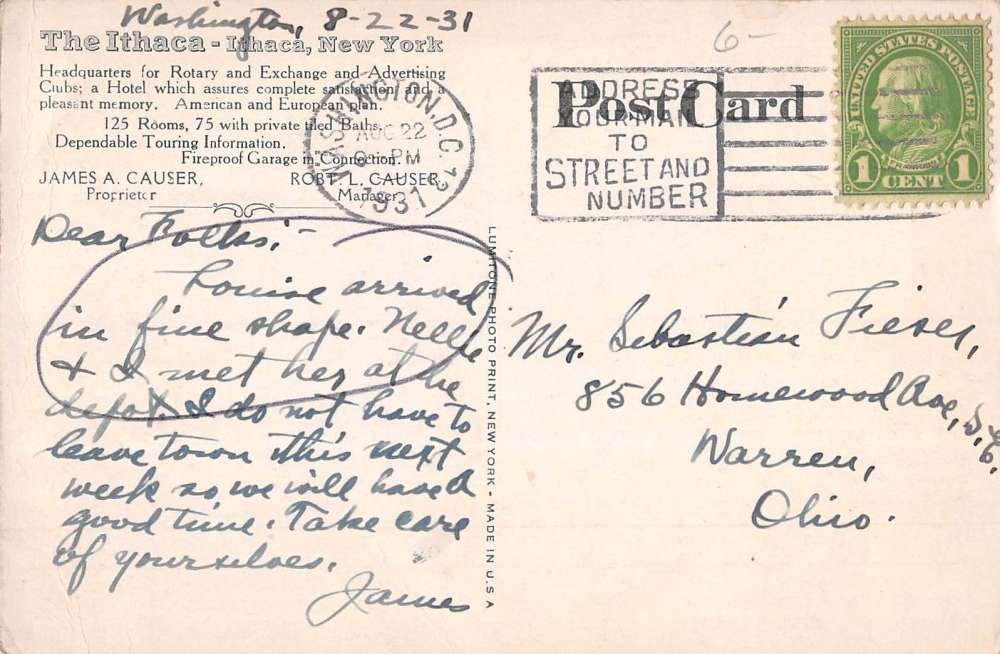 Washington, 8-22-31
The Ithaca - Ithaca, New York
Headquarters for Rotary and Exchange and Advertising
Clubs; a Hotel which assures complete satisfaction and a
pleasant memory. American and European plan.
125 Rooms, 75 with private tiled Baths.
Dependable Touring Information.
Fireproof Garage in Connection.
JAMES A. CAUSER, ROBT. L. CAUSER,
Proprietor Manager
Dear Folks:-
Louise arrived
in fine shape. Nelle
& I met her at the
depot. I do not have to
leave town this next
week so we will have a
good time. Take care
of yourselves.
James
LUMITONE PHOTO PRINT, NEW YORK - MADE IN U.S.A
6-
Post Card
WASHINGTON, D.C. 13
AUG 22
PM
1931
ADDRESS
YOUR MAIL
TO
STREET AND
NUMBER
UNITED STATES POSTAGE
1 CENT 1
Mr. Sebastian Fieser,
856 Homewood Ave, S.E.
Warren,
Ohio.